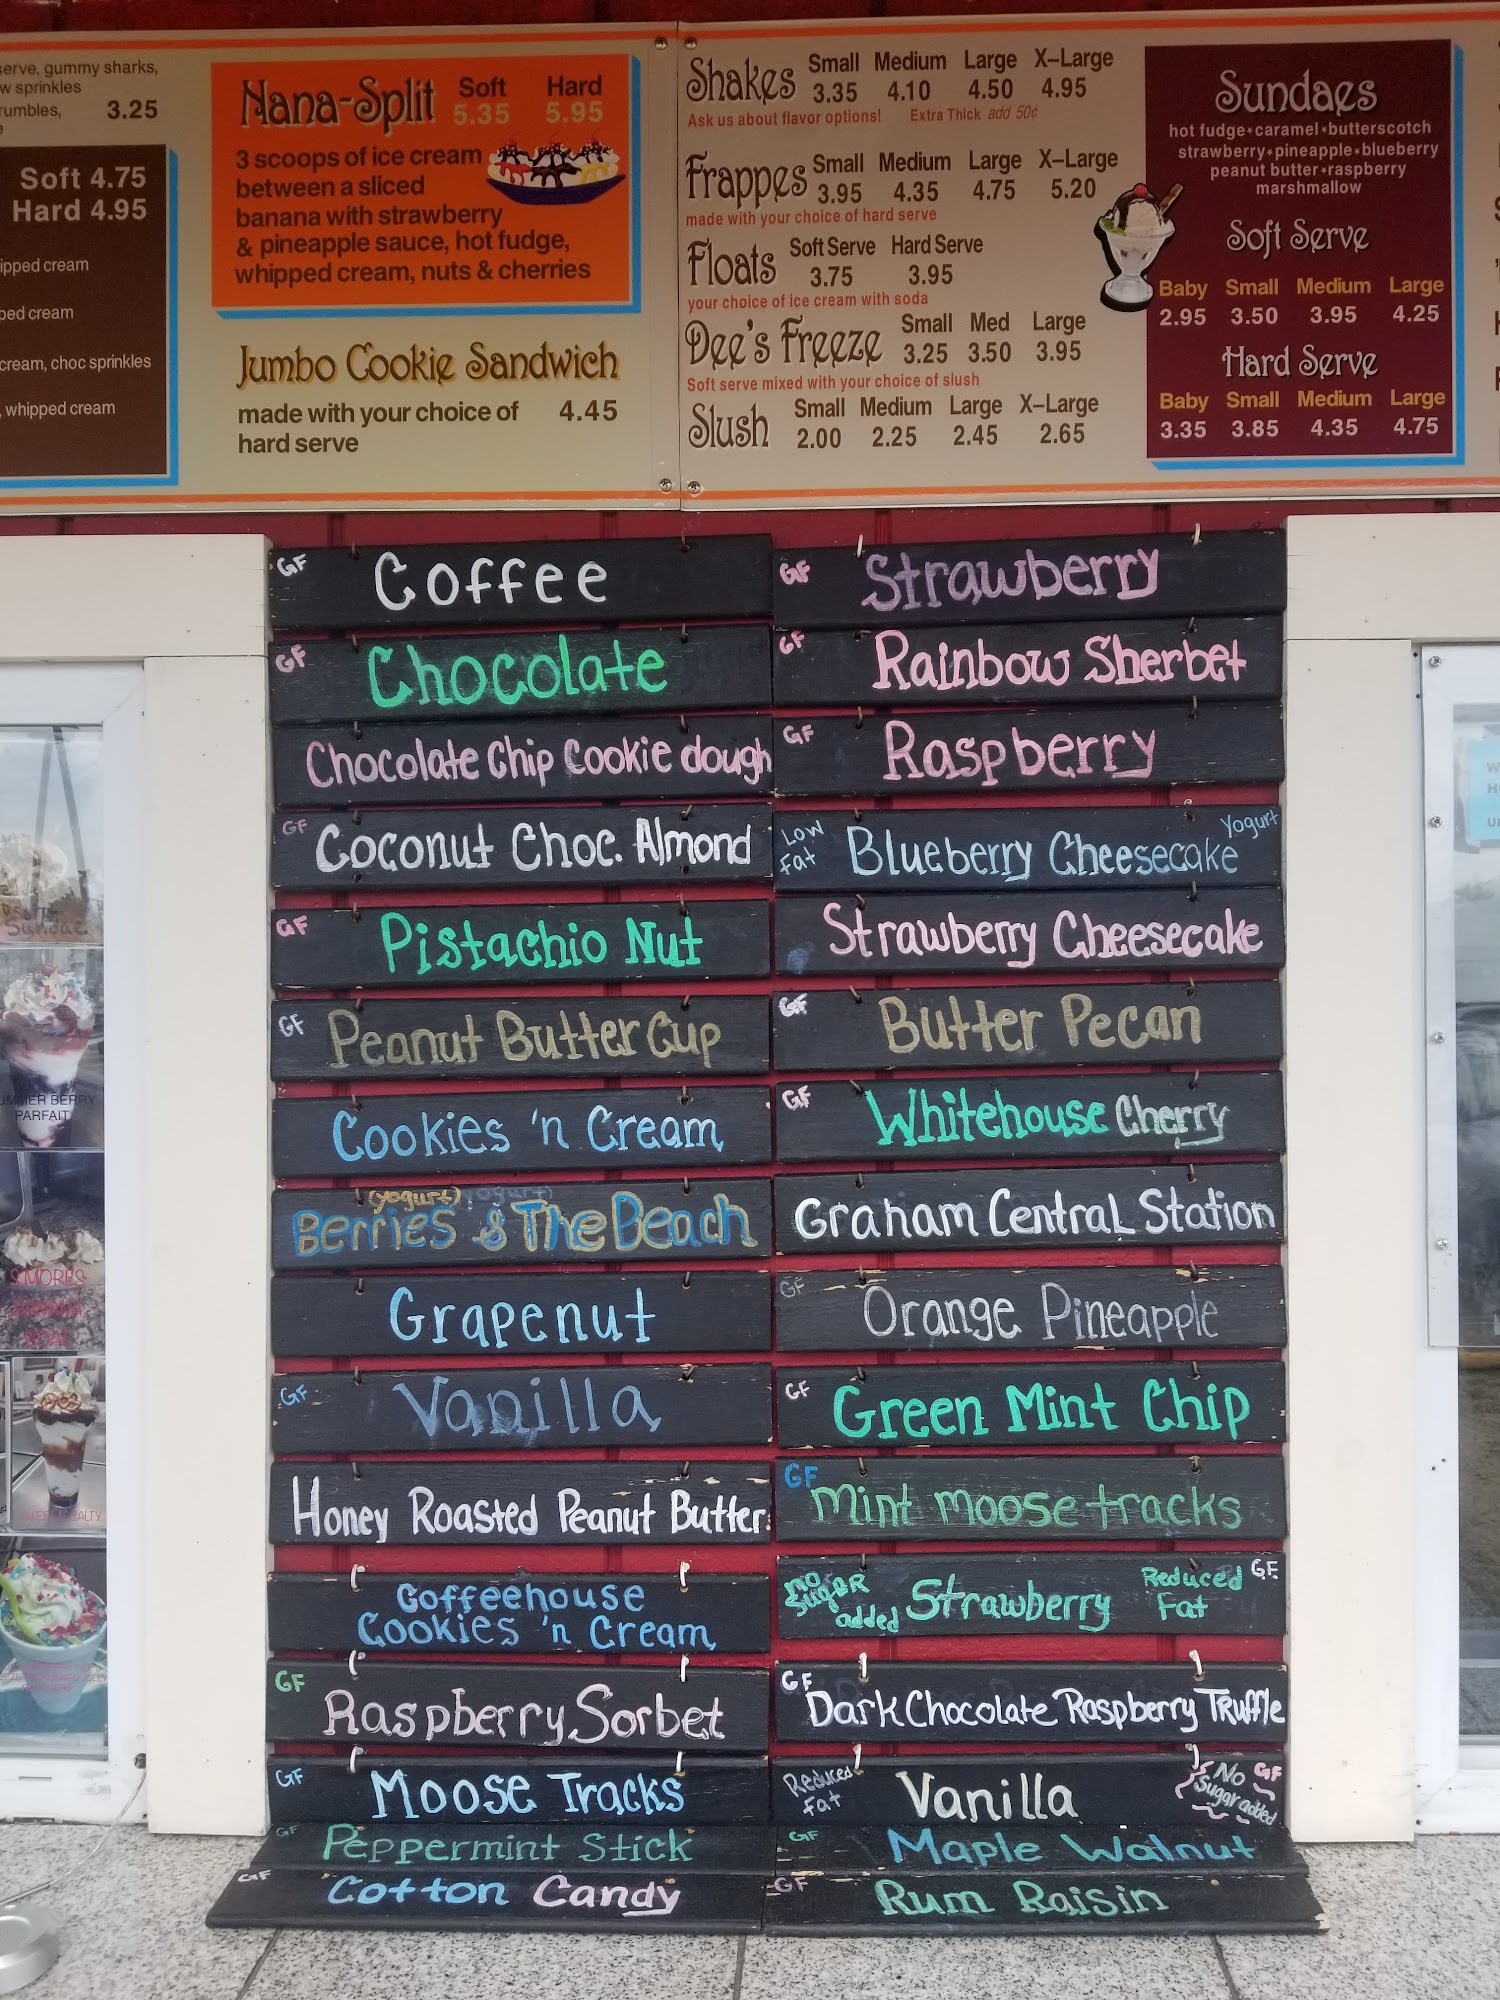 serve, gummy sharks,
w sprinkles
rumbles, 3.25
Soft 4.75
Hard 4.95
ipped cream
ped cream
cream, choc sprinkles
, whipped cream
Nana-Split Soft Hard
5.35 5.95
3 scoops of ice cream
between a sliced
banana with strawberry
& pineapple sauce, hot fudge,
whipped cream, nuts & cherries
Jumbo Cookie Sandwich
made with your choice of 4.45
hard serve
Shakes Small Medium Large X-Large
3.35 4.10 4.50 4.95
Ask us about flavor options! Extra Thick add 50¢
Frappes Small Medium Large X-Large
3.95 4.35 4.75 5.20
made with your choice of hard serve
Floats Soft Serve Hard Serve
3.75 3.95
your choice of ice cream with soda
Dee's Freeze Small Med Large
3.25 3.50 3.95
Soft serve mixed with your choice of slush
Slush Small Medium Large X-Large
2.00 2.25 2.45 2.65
Sundaes
hot fudge•caramel•butterscotch
strawberry•pineapple•blueberry
peanut butter•raspberry
marshmallow
Soft Serve
Baby Small Medium Large
2.95 3.50 3.95 4.25
Hard Serve
Baby Small Medium Large
3.35 3.85 4.35 4.75
GF Coffee
GF Chocolate
Chocolate Chip Cookie dough
GF Coconut Choc. Almond
GF Pistachio Nut
GF Peanut Butter Cup
Cookies 'n Cream
(yogurt) yogurt)
Berries & The Beach
Grapenut
GF Vanilla
Honey Roasted Peanut Butter
Coffeehouse
Cookies 'n Cream
GF Raspberry Sorbet
GF Moose Tracks
GF Peppermint Stick
GF Cotton Candy
GF Strawberry
GF Rainbow Sherbet
GF Raspberry
Low Fat Blueberry Cheesecake Yogurt
Strawberry Cheesecake
GF Butter Pecan
GF Whitehouse Cherry
Graham Central Station
GF Orange Pineapple
GF Green Mint Chip
GF Mint moose tracks
no sugar added Strawberry Reduced Fat GF
GF Dark Chocolate Raspberry Truffle
Reduced Fat Vanilla No Sugar added GF
GF Maple Walnut
GF Rum Raisin
Sundae
UMMER BERRY
PARFAIT
S'MORES